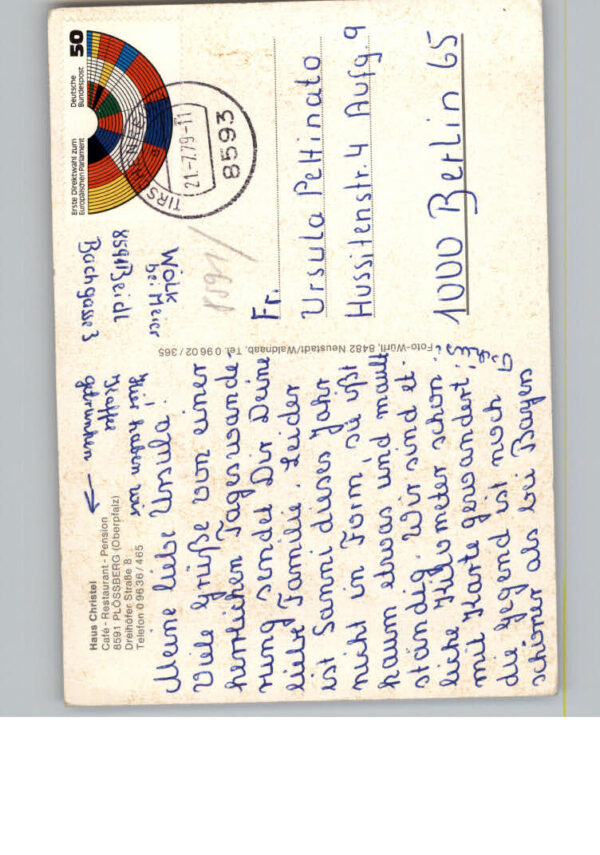 Haus Christel
Café - Restaurant - Pension
8591 PLÖSSBERG (Oberpfalz)
Dreihöfer Straße 8
Telefon 0 96 36 / 465
← Hier haben wir
Kaffee
getrunken
Meine liebe Ursula!
Viele Grüße von einer
herrlichen Tageswande-
rung sendet Dir Deine
liebe Familie. Leider
ist Sanni dieses Jahr
nicht in Form, sie ißt
kaum etwas und mault
ständig. Wir sind et-
liche Kilometer schon
mit Karte gewandert;
die Gegend ist noch
schöner als bei Bayers
Foto-Württ, 8482 Neustadt/Waldnaab, Tel. 0 96 02 / 365
Wolk
bei Meier
8591 Beidl
Bachgasse 3
Erste Direktwahl zum
Europäischen Parlament
Deutsche
Bundespost
50
21.-7.79-11
8593
Fr.
Ursula Peltinato
Hussitenstr. 4 Aufg. 9
1000 Berlin 65